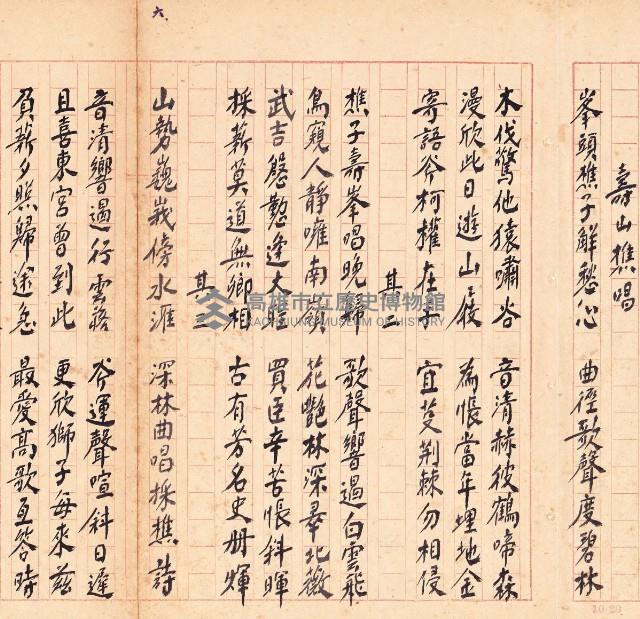 六
壽山樵唱
峯頭樵子解愁心 曲徑歌聲度碧林
木伐驚他猿嘯谷 音清赫彼鶴啼森
漫欣此日遊山伎 為悵當年埋地金
寄語斧柯權在手 宜芟荆棘勿相侵
其二
樵子壽峯唱晚歸 歌聲響遏白雲飛
鳥窺人靜嚾南嶺 花艷林深羣北薇
武吉慇懃逢大 買臣辛苦悵斜暉
採薪莫道無卿相 古有芳名史册輝
其三
山勢巍峩傍水涯 深林曲唱採樵詩
音清響遏行雲 斧運聲喧斜日遲
且喜東宮曾到此 更欣獅子每來茲
負薪夕照歸途急 最愛高歌互答時
高雄市立歷史博物館
KAOHSIUNG MUSEUM OF HISTORY
10-20